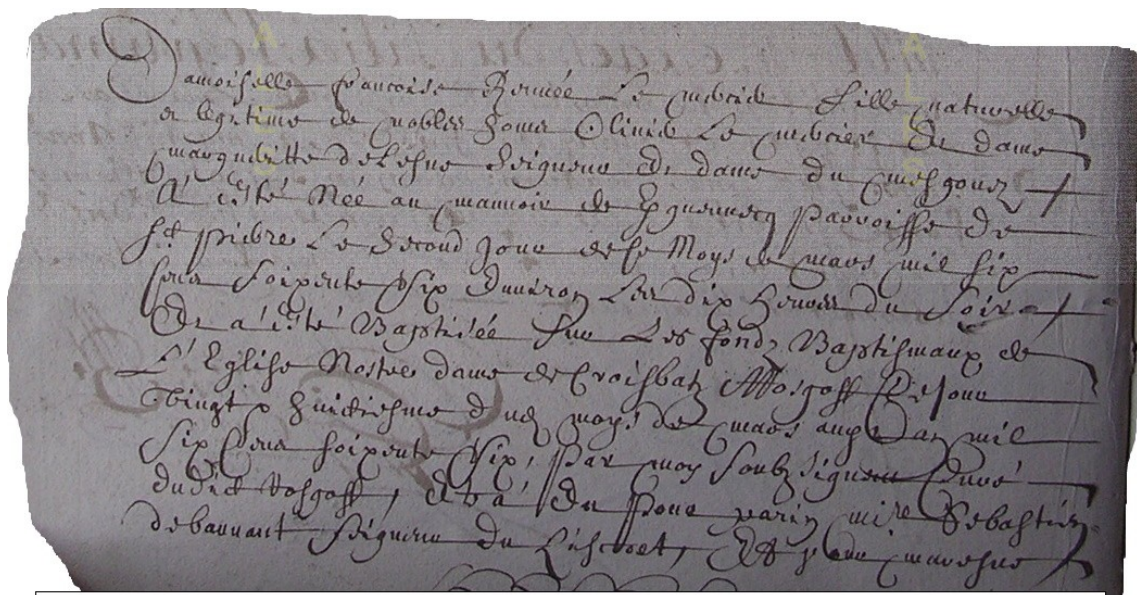 Damoiselle Francoise Renée Le mercier fille naturelle
et legitime de nobles homs Olivier Le mercier et dame
margueritte de Lesne Seigneur et dame du mesgouez
A esté Née au mannoir de parroisse de
St pierre Le Second Jour de se Moys de mars mil six
cens soixente six environ Les dix heures du soir
Et a esté Baptisée sur Les fondz Baptismaux de
L'Eglise Nostre dame de Croisbatz Rosgoff Ce Jour
vingt huictiesme dudit moys de mars aud an mil
six cens soixente six, par moy soubzsignent Curé
dudict Rosgoff, et a Eu pour parin mire Sebastien
de Seigneur du et pour mareine